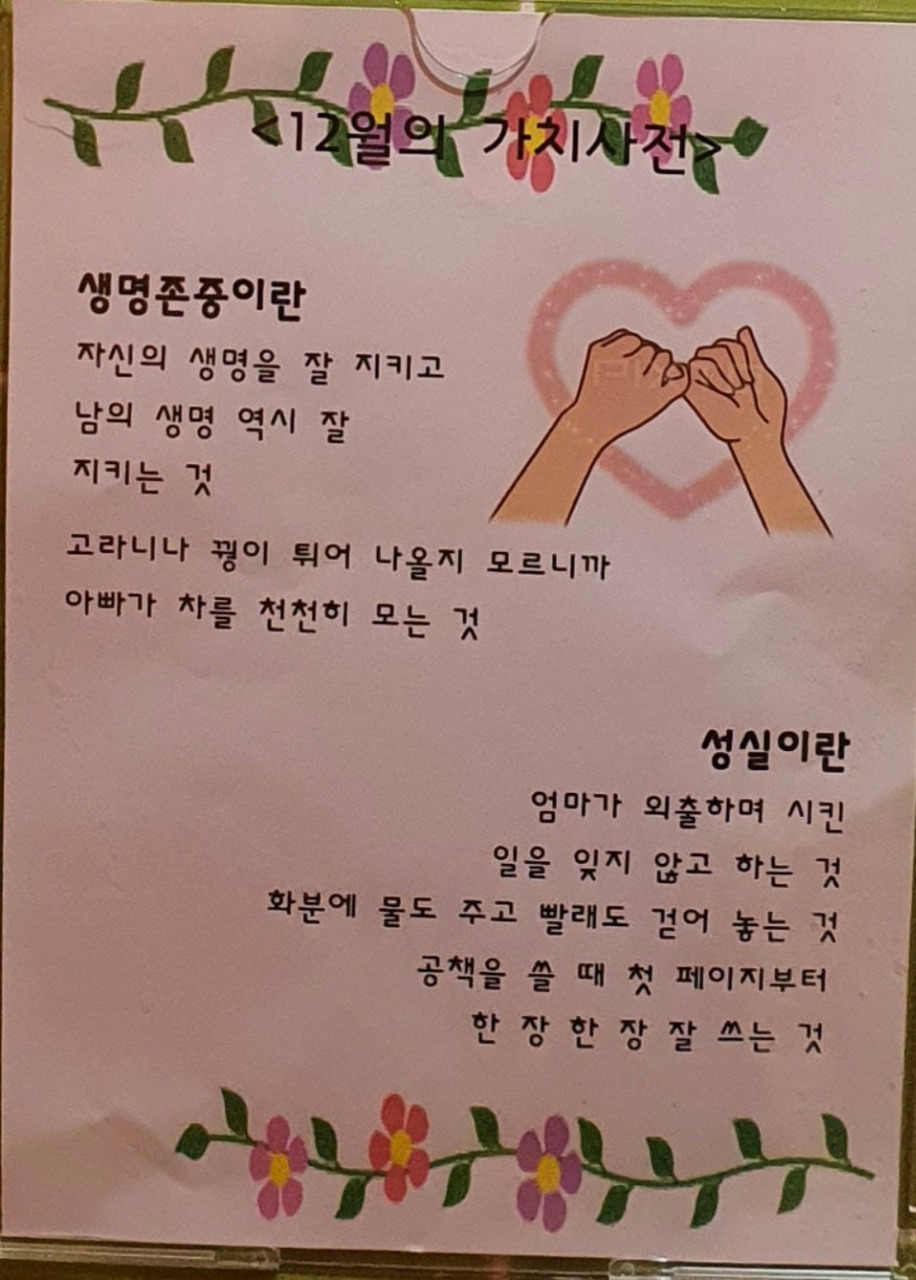 <12월의 가치사전>
생명존중이란
자신의 생명을 잘 지키고
남의 생명 역시 잘
지키는 것
고라니나 꿩이 튀어 나올지 모르니까
아빠가 차를 천천히 모는 것
성실이란
엄마가 외출하며 시킨
일을 잊지 않고 하는 것
화분에 물도 주고 빨래도 걷어 놓는 것
공책을 쓸 때 첫 페이지부터
한 장 한 장 잘 쓰는 것